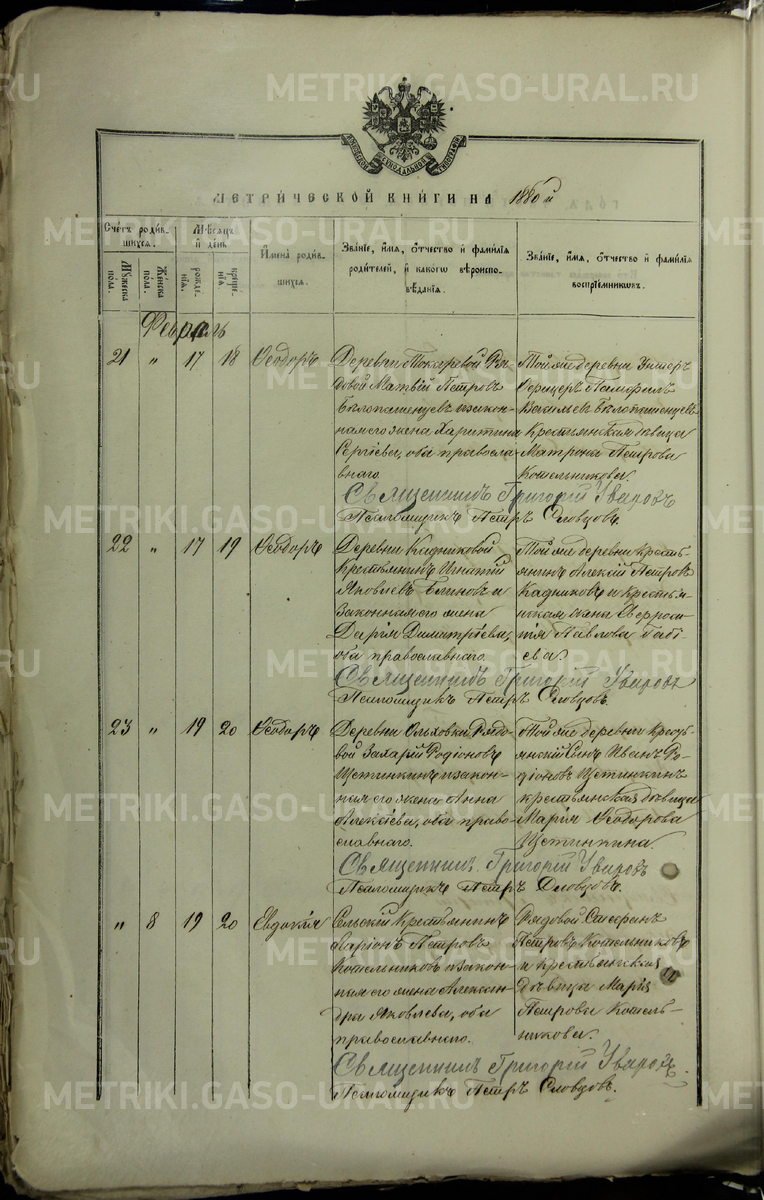 METRIKI.GASO-URAL.RU
МЕТРИ́ЧЕСКОЙ КНИ́ГИ НА 1880й
Сче́тъ роди́вшихся.
Му́жеска пола.
Же́нска пола.
Мѣ́сяцъ и́ де́нь
рожде́нїѧ.
креще́нїѧ
И҆мена̀ роди́вшихся.
Зва́нїе, и҆́мѧ, ѻ҆́тчество и҆ фами́лїѧ роди́телей, и҆ како́гѡ вѣроисповѣ́данїѧ.
Зва́нїе, и҆́мѧ, ѻ҆́тчество и҆ фами́лїѧ воспрїе́мникѡвъ.
Февраль
21 " 17 18 Ѳеодоръ
Деревни Токаревой Ря-
довой Матвій Петровъ
Бѣлопашенцевъ и закон-
ная его жена Харитина
Сергіева, оба правосла-
внаго.
Той же деревни Унтеръ
Офицеръ Памфилъ
Васильевъ Бѣлопашенцевъ
Крестьянская дѣвица
Матрона Петрова
Котельникова.
Священникъ Григорій Уваровъ
Псаломщикъ Петръ Словцовъ.
22 " 17 19 Ѳеодоръ
Деревни Кадниковой
крестьянинъ Игнатій
Яковлевъ Блиновъ и
законная его жена
Дарія Димитріева,
оба православнаго.
Той же деревни кресть-
янинъ Алексій Петровъ
Кадниковъ и крестьян-
ская жена
Павлова
Священникъ Григорій Уваровъ
Псаломщикъ Петръ Словцовъ.
23 " 19 20 Ѳеодоръ
Деревни Ольховки Рядо-
вой Захарій Родіоновъ
Щетинкинъ и закон-
ная его жена Анна
Алексіева, оба право-
славнаго.
Той же деревни Кресть-
янскій сынъ Иванъ Ро-
діоновъ Щетинкинъ
крестьянская дѣвица
Марія Ѳеодорова
Щетинкина.
Священникъ Григорій Уваровъ
Псаломщикъ Петръ Словцовъ.
" 8 19 20 Евдокія
Сельскій Крестьянинъ
Ларіонъ Петровъ
Котельниковъ и закон-
ная его жена Алексан-
дра Яковлева, оба
православнаго.
Рядовой
Петровъ Котельниковъ
и крестьянская
дѣвица Марія
Петрова Котель-
никова.
Священникъ Григорій Уваровъ.
Псаломщикъ Петръ Словцовъ.